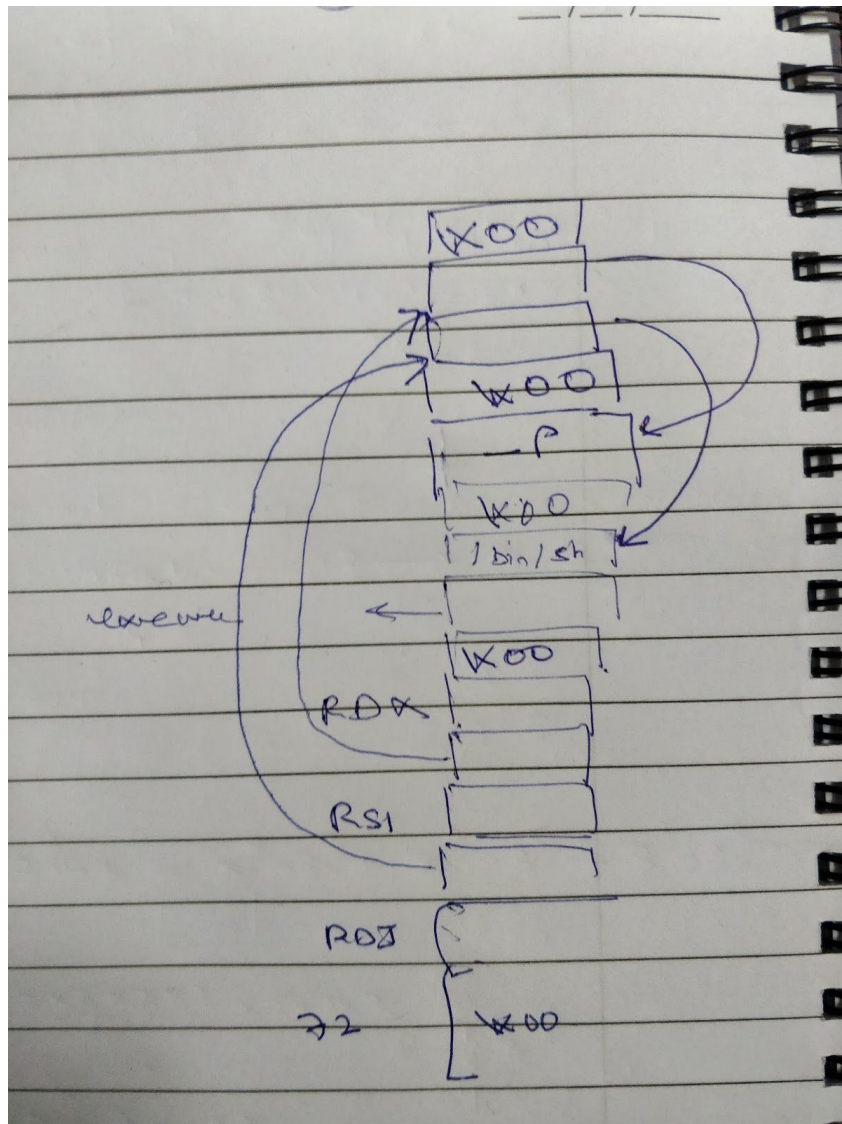 \x00
\x00
-p
\x00
/bin/sh
execve
\x00
RDX
RSI
RDI
72
\x00